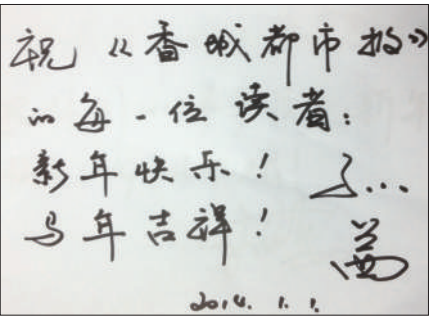 祝《香城都市报》
的每一位读者：
新年快乐！
马年吉祥！
2014.1.1.